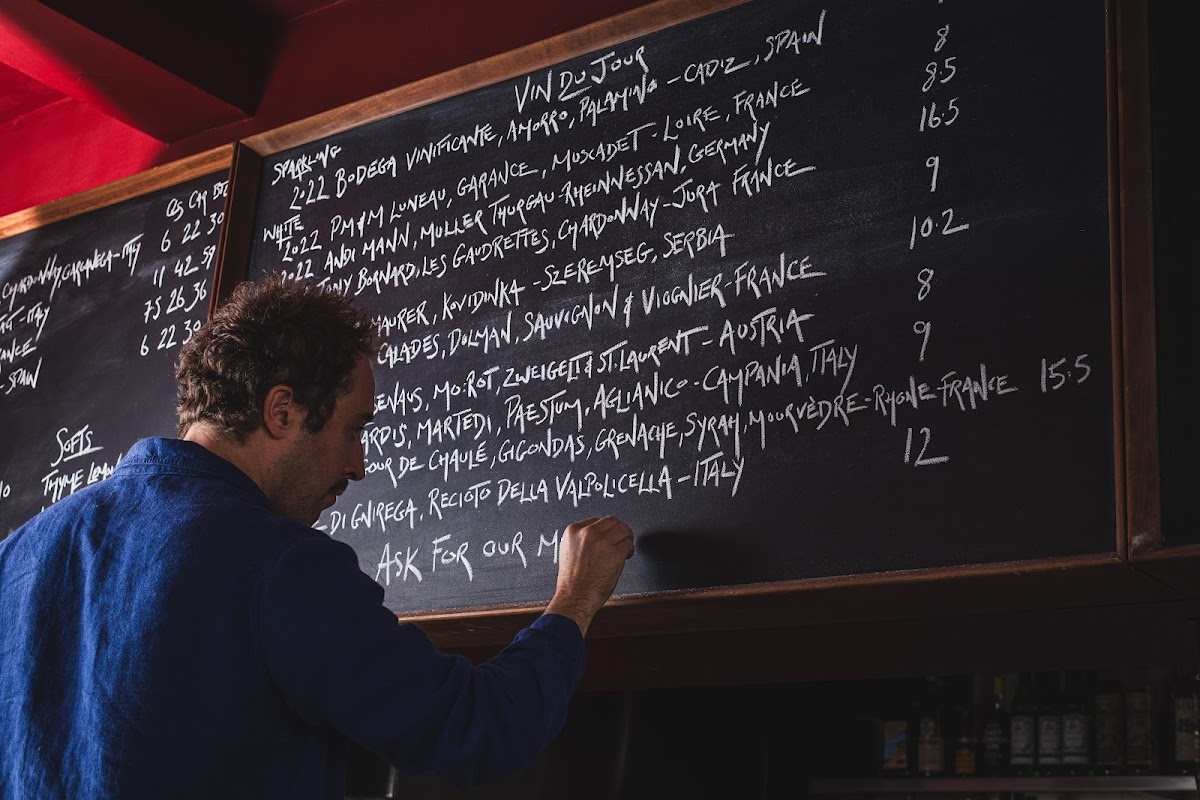 GS CAR BTL
6 22 30
CHARDONNAY, GARGANEGA - ITALY 11 42 59
- ITALY 7.5 26 36
6 22 30
- SPAIN
SOFTS
THYME
VIN DU JOUR
SPARKLING
2022 BODEGA VINIFICANTE, AMORRO, PALAMINO - CADIZ, SPAIN 8
WHITE
2022 PM&M LUNEAU, GARANCE, MUSCADET - LOIRE, FRANCE 8.5
2022 ANDI MANN, MULLER THURGAU - RHEINNESSAN, GERMANY 16.5
TONY BORNARD, LES GAUDRETTES, CHARDONNAY - JURA FRANCE
MAURER, KOVIDINKA - SZEREMSEG, SERBIA 9
CALADES, DOLMAN, SAUVIGNON & VIOGNIER - FRANCE 10.2
MO:ROT, ZWEIGELT & ST. LAURENT - AUSTRIA 8
MARTEDI, PAESTUM, AGLIANICO - CAMPANIA, ITALY 9
DE CHAULÉ, GIGONDAS, GRENACHE, SYRAH, MOURVÈDRE - RHONE - FRANCE 15.5
DI GNIREGA, RECIOTO DELLA VALPOLICELLA - ITALY 12
ASK FOR OUR M